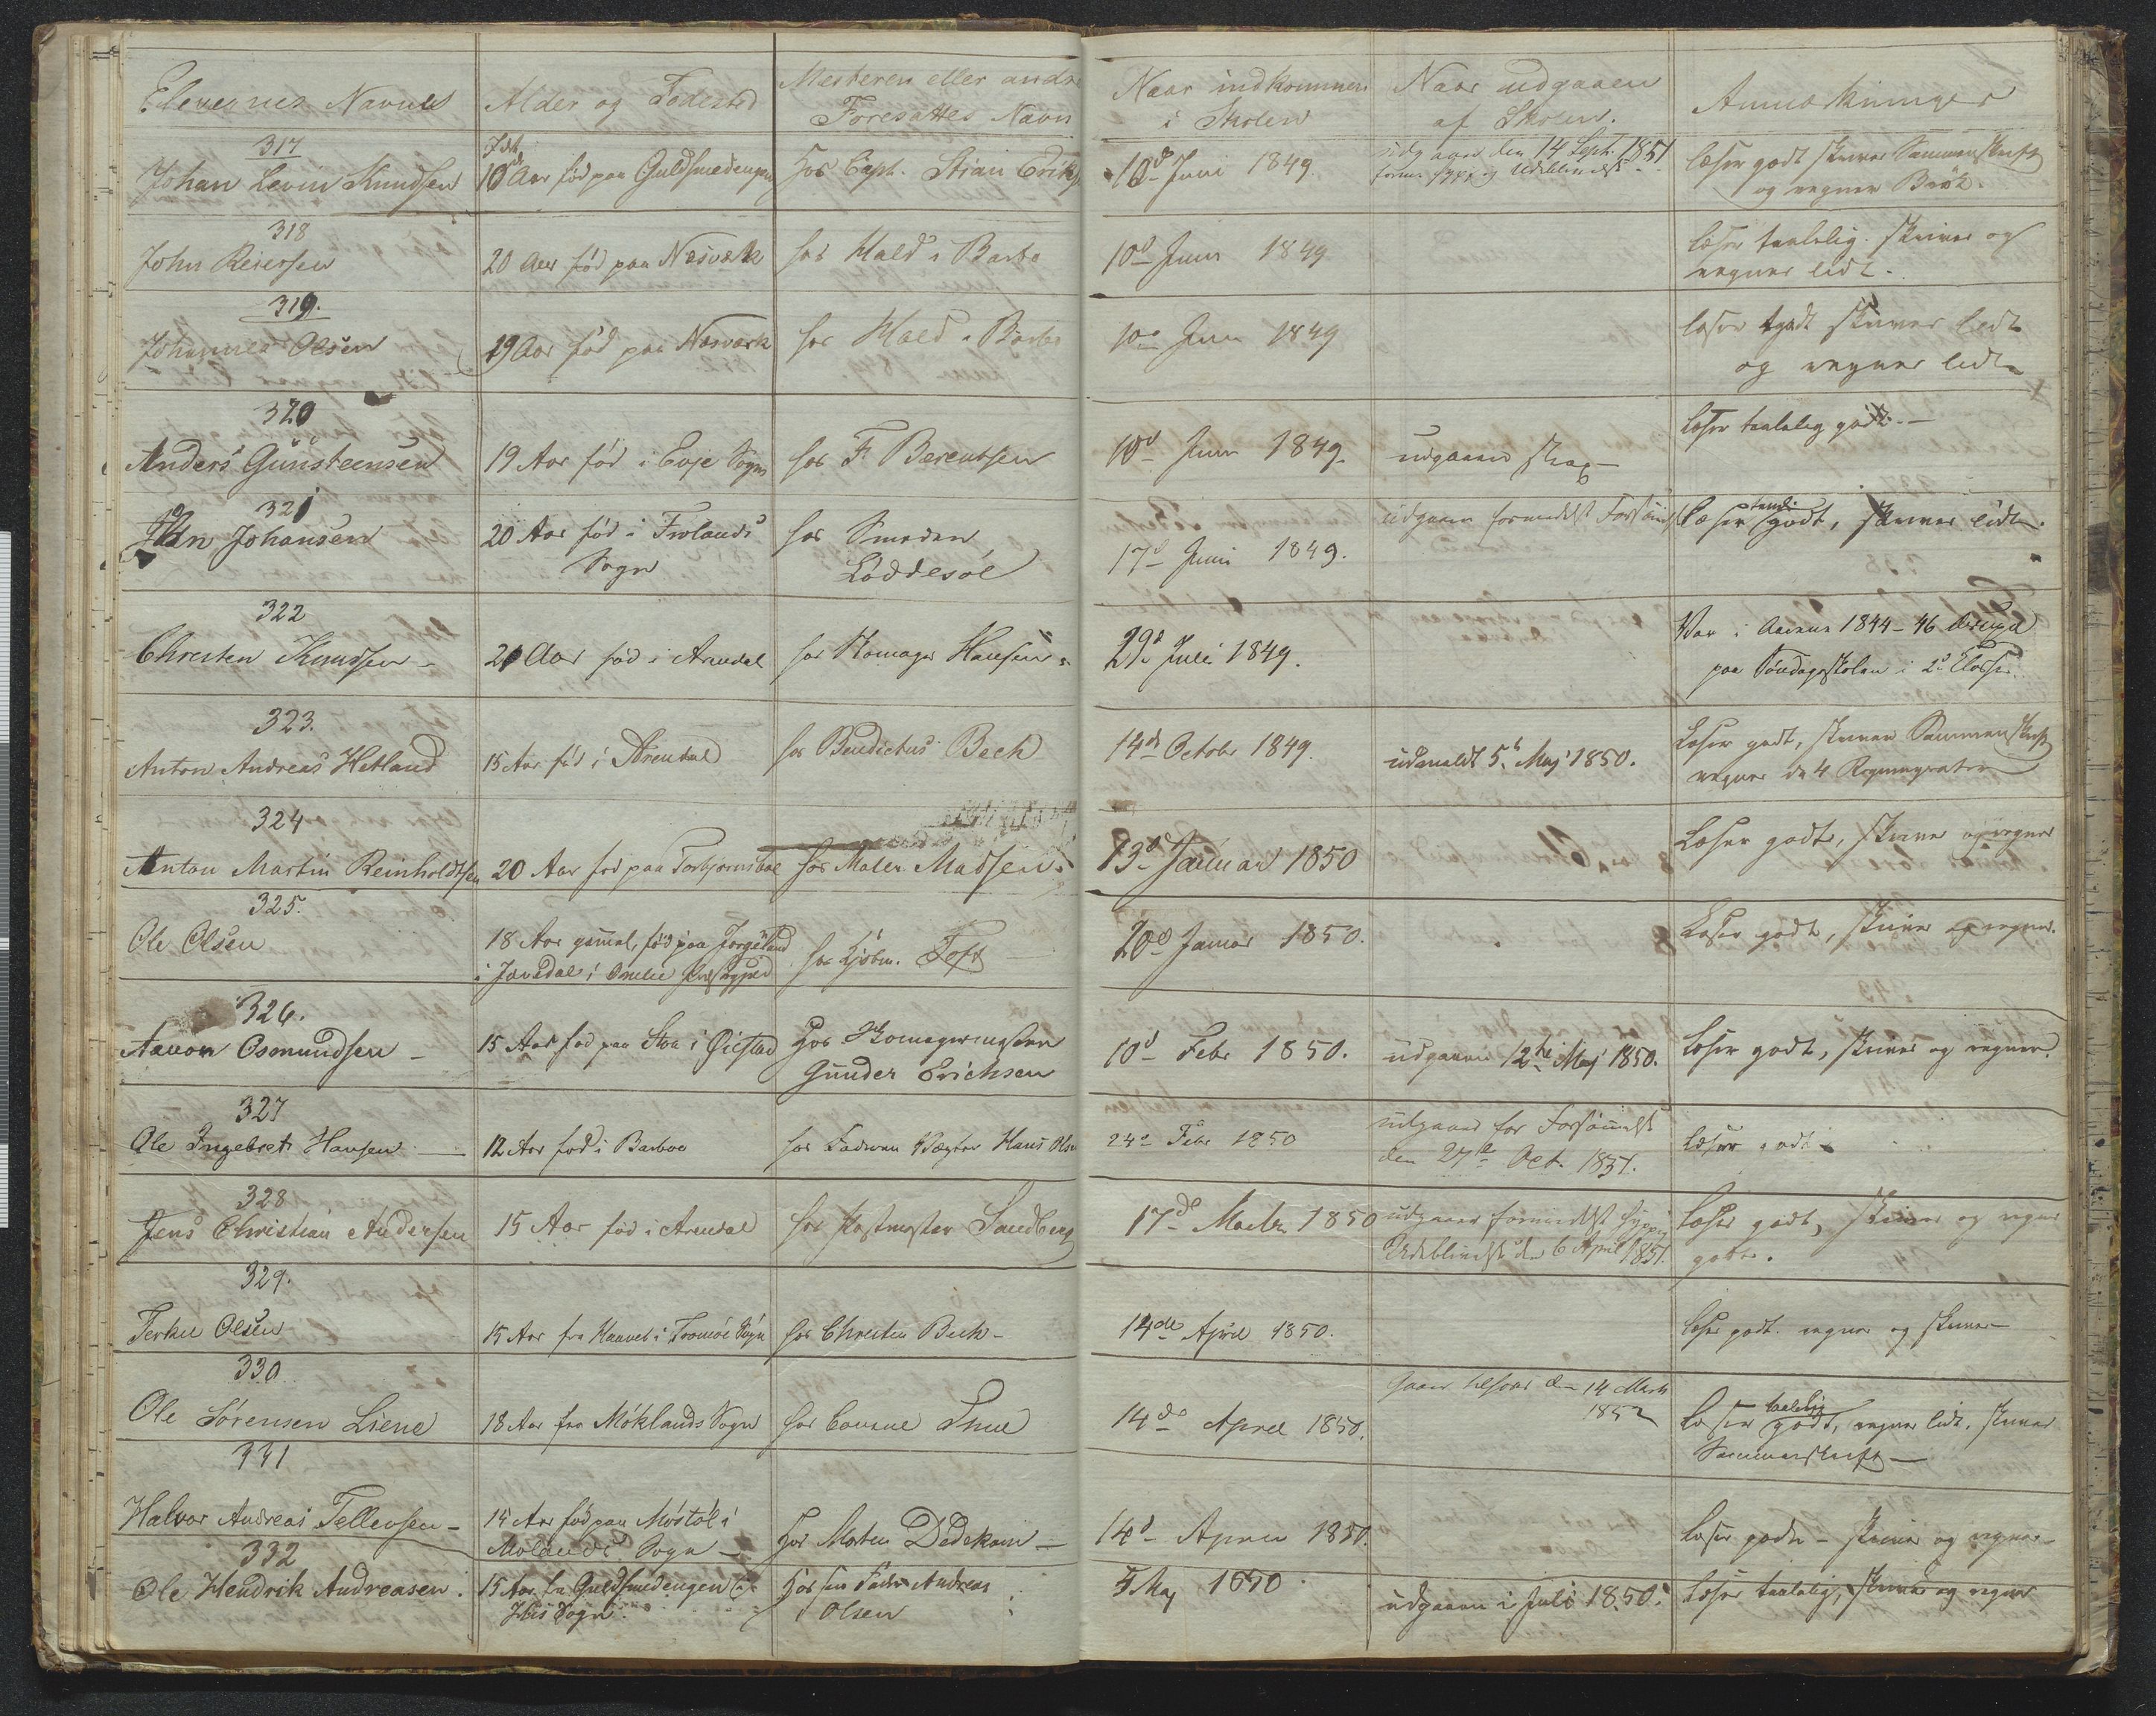 Elevernes Navnes
Alder og Fødested
Mesteren eller andre
Foresattes Navn
Naar indkommen
i Skolen
Naar udgaaen
af Skolen.
Anmærkninger
317
Johan Levin Knudsen
10 Aar fød paa Guldsmedengen
Hos Capt. Stian Eriks
10d Juni 1849
udgaaen den 14 Sept. 1851
Udeblivelse
læser godt skriver Sammenskrift
og regner Brøk.
318
John Reiersen
20 Aar fød paa Næsværk
hos Hald i Barbo
10d Juni 1849
læser taalelig. skriver og
regner lidt.
319.
Johannes Olsen
19 Aar fød paa Næsværk
hos Hald i Barbo
10d Juni 1849
læser godt skriver lidt
og regner lidt
320
Anders Gunsteensen
19 Aar fød i Evje Sogn
hos F. Berentsen
10d Juni 1849.
udgaaen strax
læser taalelig godt. —
321
Johansen
20 Aar fød i Frolands
Sogn
hos Smeden
Løddesøl
17d Juni 1849.
udgaaen formedelst Forsømmelse
læser godt, skriver lidt.
322
Christen Knudsen —
20 Aar fød i Arendal
hos Skomager Hansen
29d Juli 1849.
Var i Aarene 1844-46
paa Søndagsskolen i 2d Classe.
323.
Anton Andreas Hetland
15 Aar fød i Arendal
hos Bendictus Bech
14de Octobr 1849
udmeldt 5te Maj 1850.
Læser godt, skriver Sammenskrift
regner de 4 Regningsarter
324
Anton Martin Reinholdtsen
20 Aar fød paa Torbjørnsboe
hos Maler Madsen.
13d Januar 1850
Læser godt, skriver og regner
325.
Ole Olsen
18 Aar gammel, fød paa
i Omlie Præstegjeld
hos Kjøbm. Toft
20d Januar 1850.
Læser godt, skriver og regner.
326.
Aanon Osmundsen —
15 Aar fød paa Stoa i Øiestad
Hos Skomagermester
Gunder Erichsen
10d Febr 1850.
udgaaen 12te Maj 1850.
læser godt, skriver og regner.
327
Ole Ingebret Hansen —
12 Aar fød i Barboe
hos Faderen Vægter Hans Olsen
24d Febr 1850
udgaaed for Forsømmelse
den 27de Oct. 1851.
læser godt
328
Jens Christian Andersen
15 Aar fød i Arendal
hos Postmester Sandberg
17de Marts 1850
udgaaed formedelst hyppig
Udeblivelse den 6 April 1851.
læser godt, skriver og regner
godt.
329.
Terkel Olsen
15 Aar fra Haavet i Tromøe Sogn
hos Christen Bech —
14de April 1850.
læser godt. regner og skriver —
330
Ole Sørensen Liene
18 Aar fra Møklands Sogn
hos Consul Thue
14de April 1850.
den 14 Marts
1852
Læser taalelig godt, regner lidt, skriver
Sammenskrift —
331
Halvor Andreas Tellevsen —
14 Aar fød paa Møstøl i
Molands Sogn —
Hos Morten Dedekam —
14d April 1850.
læser godt — skriver og regner —
332
Ole Hendrik Andreasen.
15 Aar fra Guldsmedengen i
His Sogn.
Hos sin Fader Andreas
Olsen
5 Maj 1850
udgaaen i Juli 1850.
læser taalelig, skriver og regner